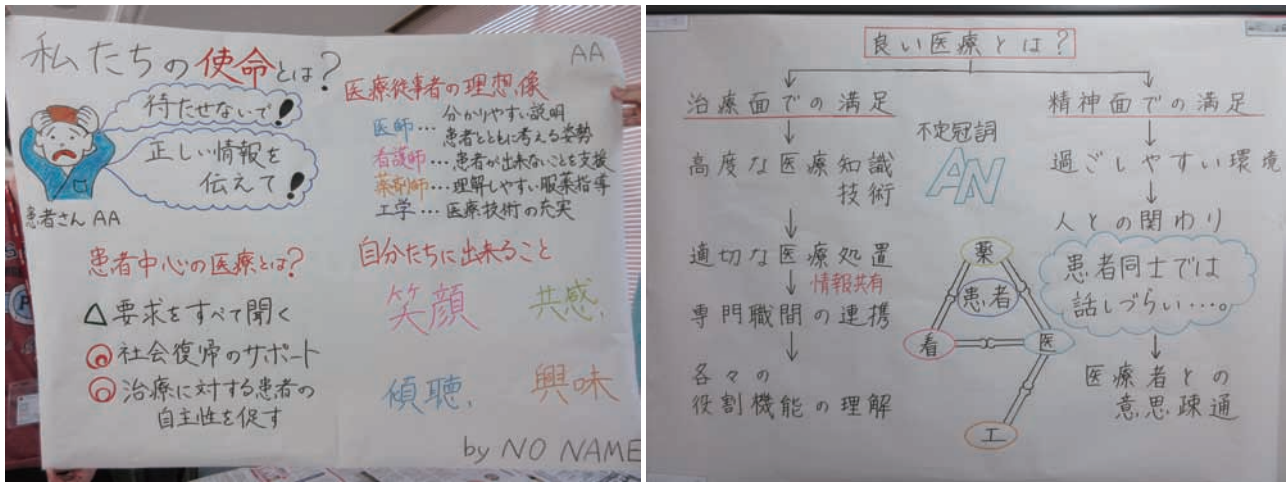 私たちの使命とは？
AA
待たせないで！
正しい情報を
伝えて！
患者さん AA
医療従事者の理想像
医師…分かりやすい説明
患者とともに考える姿勢
看護師…患者が出来ないことを支援
薬剤師…理解しやすい服薬指導
工学…医療技術の充実
患者中心の医療とは？
△要求をすべて聞く
◎社会復帰のサポート
◎治療に対する患者の
自主性を促す
自分たちに出来ること
笑顔 共感、
傾聴、 興味
by NO NAME
良い医療とは？
治療面での満足
高度な医療知識
技術
適切な医療処置
情報共有
専門職間の連携
各々の
役割機能の理解
不定冠詞
AN
薬
患者
看
医
工
精神面での満足
過ごしやすい環境
人との関わり
患者同士では
話しづらい…。
医療者との
意思疎通